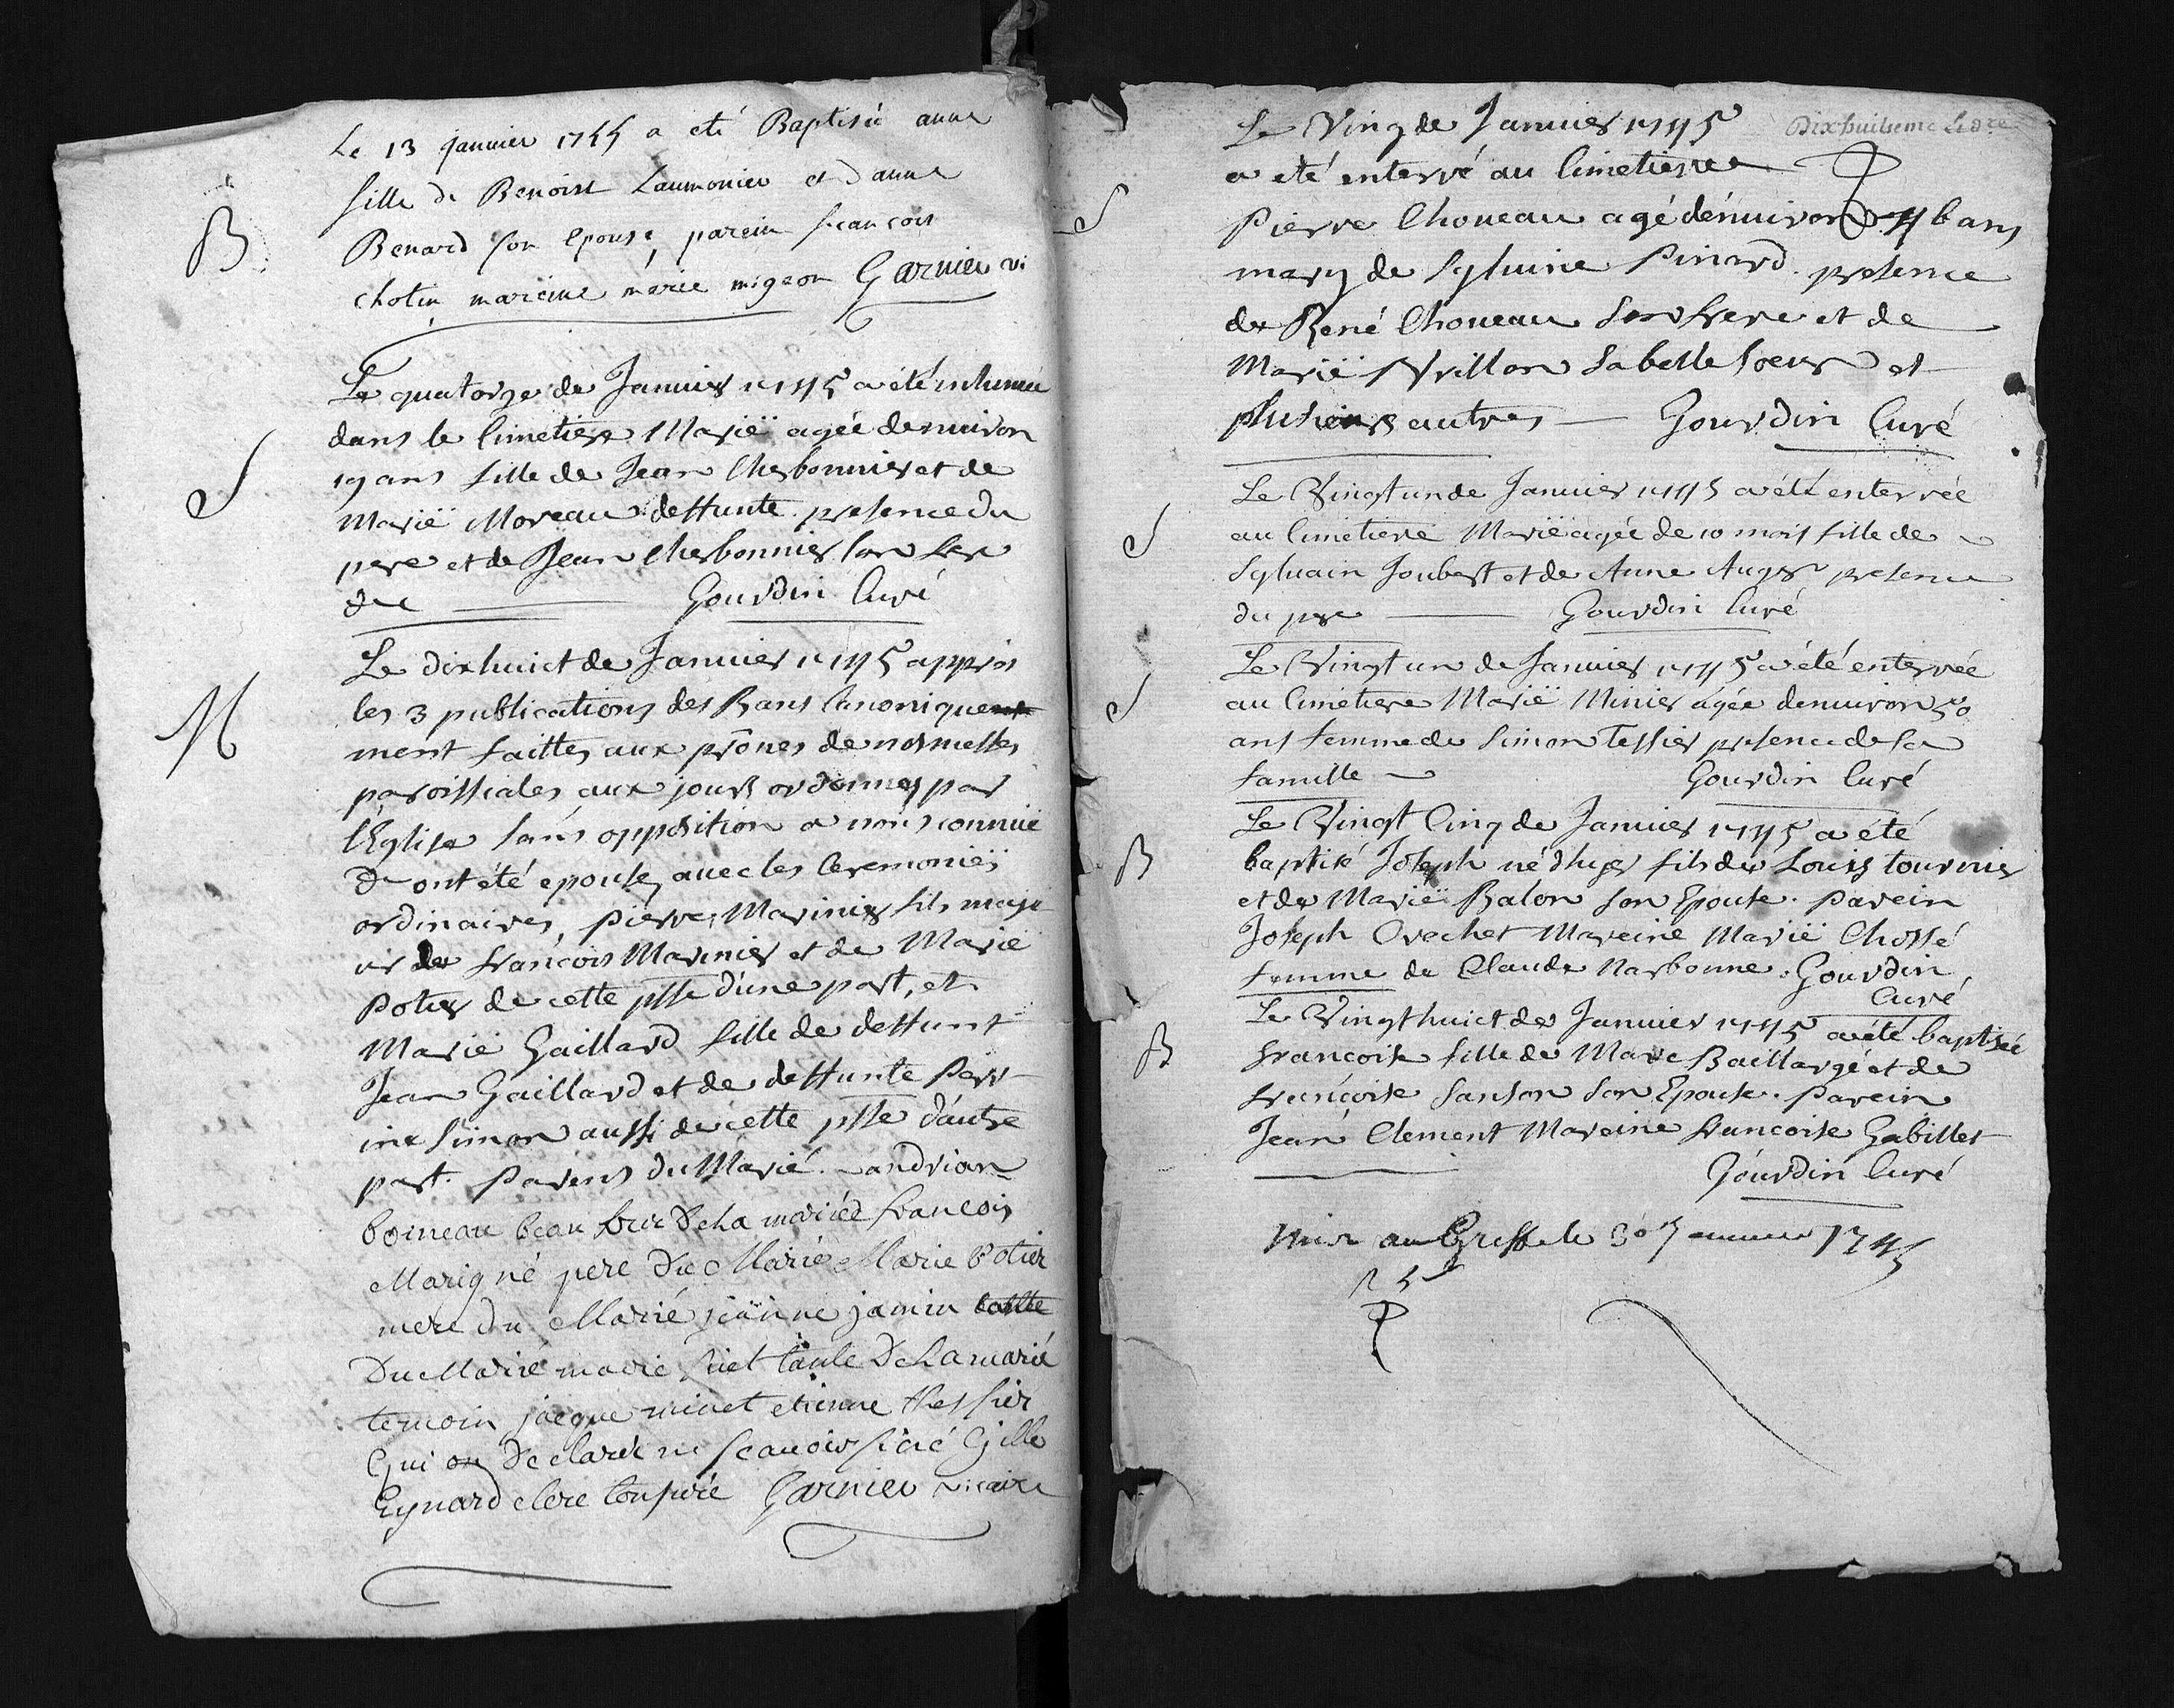 Le 13 janvier 1745 a eté Baptisée anne
fille de Benoist Laumonier et d'anne
B
Benard son epouse, parein francois
chotin mareine marie migeon Garnier vi
Le quatorze de Januier 1745 a été inhumée
dans le Cimetiere Marië agée denuiron
19 ans fille de Jean Cherbonnier et de
S
Marië Moreau deffunte. presence du
pere et de Jean Cherbonnier son frere
Gourdin Curé
Le dixhuict de Januier 1745 apprés
les 3 publications des Bans Canonique
M
ment faittes aux prônes de nos messes
paroissiales aux jours ordonnes par
l'Eglise sans opposition a nous connuë
ont été epousez auec les Ceremonies
ordinaires, Pierre Marinier fils maje
ur de francois Marinier et de Marie
Potier de cette psse d'une part, et
Marië Gaillard fille de deffunt
Jean Gaillard et de deffunte Perr
ine Simon aussi de cette psse d'autre
part. Parens du Marié. andrian
boineau beau frere De La mariée francois
Marigné pere Du Marié Marie Potier
mere du Marié jeanne jamin
Du Marié marie huet tante De La marié
temoin jacque minet etienne thessier
Qui on Declaré ne scauoir signé Gille
Eynard clerc tonsuré Garnier vicaire
Dixhuitieme
Le Vingt de Januier 1745
a eté enterré au Cimetiere
S
Pierre Choueau agé dénuiron 46 ans
mary de Syluine Pinard. presence
de René Choueau son frere et de
Marië Vrillon sa belle soeur et
plusieurs autres Gourdin Curé
Le Vingt un de Januier 1745 a été enterrée
S
au Cimetiere Marië agée de 10 mois fille de
Syluain Joubert et de Anne Auger presence
du pere Gourdin Curé
Le Vingt un de Januier 1745 a été enterrée
S
au Cimétiere Marië Minier agée denuiron 50
ans femme de Simon Tessier presence de sa
famille Gourdin Curé
Le Vingt Cinq de Januier 1745 a été
B
baptisé Joseph né d'hyer fils de Louis tournier
et de Marië Balon son Epouse. Parein
Joseph Orechet Mareine Marië Chossé
femme de Claude Narbonne. Gourdin
Curé
Le Vingthuict de Januier 1745 a été baptisée
B
francoise fille de Marc Baillargé et de
francoise Sanson son Epouse. Parein
Jean Clement Mareine francoise Gabillet
Gourdin Curé
Mis au Greffe le 30 Januier 1745